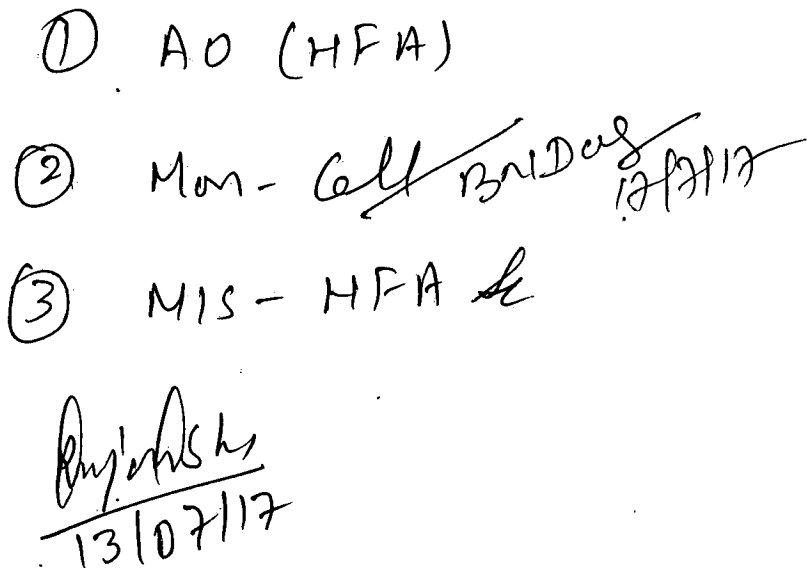 ① AO (HFA)
② Mon- Cell 17/7/17
③ MIS - HFA
13/07/17